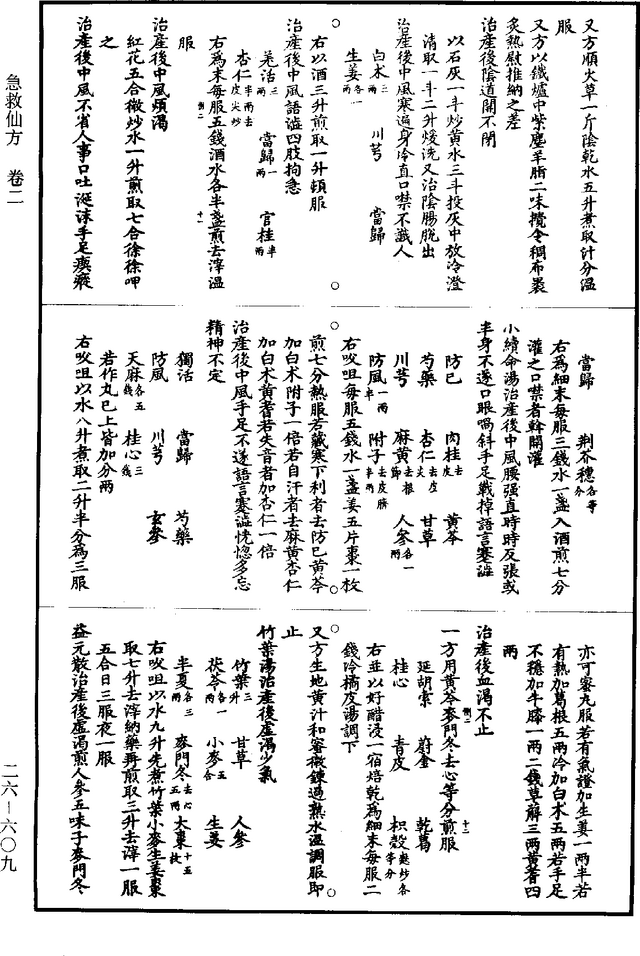 又方順火草一斤陰乾水五升煮取汁分溫
服
又方以鐵爐中紫塵羊脂二味攪令稠布裹
炙熱慰推納之差
治產後陰道開不閉
以石灰一斗炒黃水三斗投灰中放冷澄
清取一斗二升煖洗又治陰腸脫出
治產後中風寒遍身冷直口噤不識人
白术三兩 川芎 當歸
生姜各一兩
右以酒三升煎取一升頓服
治產後中風語澁四肢拘急
羌活三兩 當歸一兩 官桂半兩
杏仁半兩去皮尖炒
右爲末每服五錢酒水各半盞煎去滓溫
服
治產後中風煩渴
紅花五合微炒水一升煎取七合徐徐呷
之
治產後中風不省人事口吐涎沫手足瘈瘲
當歸 荆芥穗各等分
右爲細末每服三錢水一盞入酒煎七分
灌之口禁者斡開灌
小續命湯治產後中風腰强直時時反張或
半身不遂口眼喎斜手足戰掉語言蹇澁
防巳 肉桂去皮 黃芩
芍藥 杏仁去皮尖 甘草
川芎 麻黃去根節 人參各一兩
防風一兩半 附子去皮臍半兩
右㕮咀每服五錢水一盞姜五片棗一枚
煎七分熱服若藏寒下利者去防巳黃芩
加白术附子一倍若自汗者去麻黃杏仁
加白术黃耆若失音者加杏仁一倍
治產後中風手足不遂語言蹇澁恍惚多忘
精神不定
獨活 當歸 芍藥
防風 川芎 玄參
天麻各五錢 桂心三錢
若作丸巳上皆加分兩
右㕮咀以水八升煮取二升半分爲三服
亦可蜜丸服若有氣證加生姜一兩半若
有熱加葛根五兩冷加白术五兩若手足
不穩加牛膝一兩二錢萆解三兩黃耆四
兩
治產後血渴不止
一方用黃芩麥門冬去心等分煎服
延胡索 蔚金 乾葛
桂心 青皮 枳殼麩炒各等分
右並以好醋浸一宿焙乾爲細末每服二
錢冷橘皮湯調下
又方生地黃汁和蜜微鍊過熱水溫調服即
止
竹葉湯治產後虛渴少氣
竹葉三升 甘草 人參
茯苓各一兩 小麥五合 生姜
半夏各三兩 麥門冬去心五兩 大棗十五枚
右㕮咀以水九升先煮竹葉小麥生姜棗
取七升去滓納藥再煎取三升去滓一服
五合日三服夜一服
益元散治產後虛渴煎人參五味子麥門冬
急救仙方 卷二
二六—六〇九